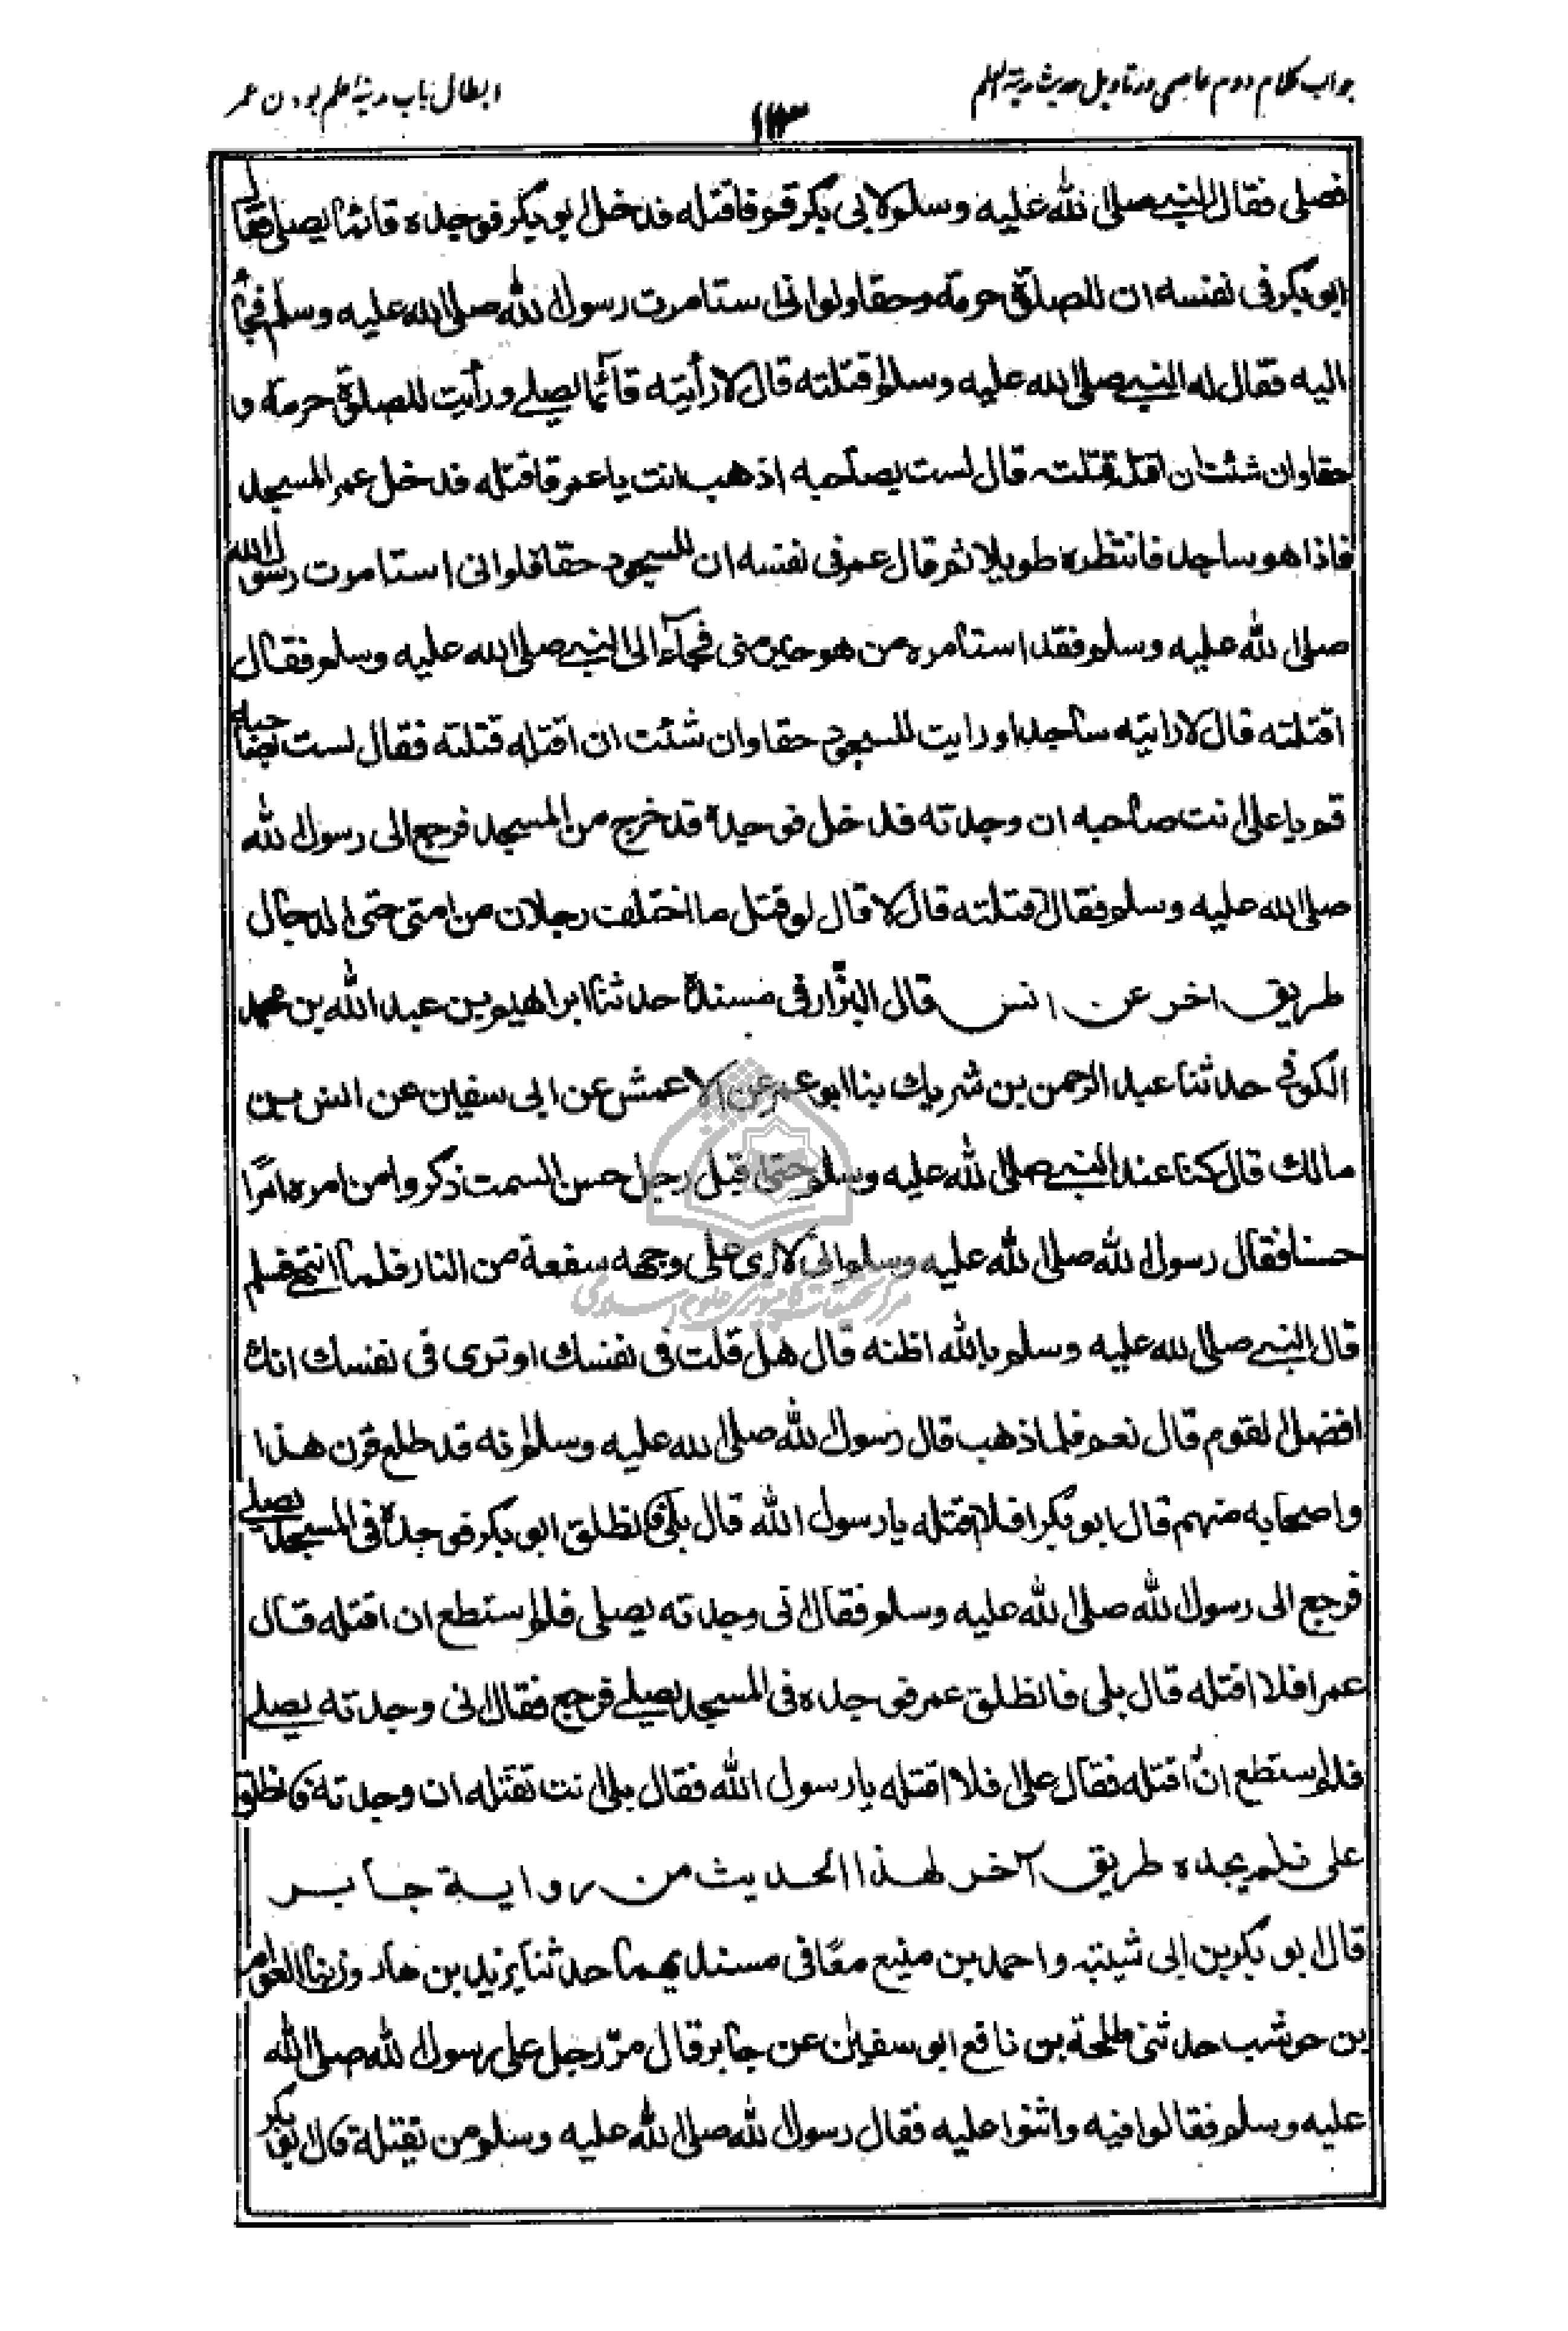 جواب کلام دوم عاصمی در تاویل حدیث مدینة العلم
۱۱۳
ابطال باب مدینۀ علم بودن عمر
فصلى فقال النبي صلى الله عليه وسلم لابى بكر قم فاقتله فدخل ابو بكر فوجده قائما يصلى فقال
ابو بكر فى نفسه ان للصلوة حرمة وحقا ولو انى استامرت رسول الله صلى الله عليه وسلم فجاء
اليه فقال له النبي صلى الله عليه وسلم اقتلته قال لا رأيته قائما يصلي ورأيت للصلوة حرمة و
حقا وان شئت ان اقتله قتلته قال لست بصاحبه اذهب انت يا عمر فاقتله فدخل عمر المسجد
فاذا هو ساجد فانتظره طويلا ثم قال عمر فى نفسه ان للسجود حقا فلو انى استامرت رسول الله
صلى الله عليه وسلم فقد استامره من هو خير منى فجاء الى النبي صلى الله عليه وسلم فقال
اقتلته قال لا رايته ساجدا ورايت للسجود حقا وان شئت ان اقتله قتلته فقال لست بصاحبه
قم يا على انت صاحبه ان وجدته فدخل فوجده قد خرج من المسجد فرجع الى رسول الله
صلى الله عليه وسلم فقال اقتلته قال لا قال لو قتل ما اختلف رجلان من امتى حتى الدجال
طريق اخر عن انس قال البزّار فى مسنده حدثنا ابراهيم بن عبد الله بن محمد
الكوفي حدثنا عبد الرحمن بن شريك بنا ابو عمر عن الاعمش عن ابى سفين عن انس بن
مالك قال كنا عند النبي صلى الله عليه وسلم حتى اقبل رجل حسن السمت ذكروا من امره امرًا
حسنا فقال رسول الله صلى الله عليه وسلم انى لارى على وجهه سفعة من النار فلما انتهى فسلم
قال النبي صلى الله عليه وسلم بالله اظنه قال هل قلت فى نفسك او ترى فى نفسك انك
افضل القوم قال نعم فلما ذهب قال رسول الله صلى الله عليه وسلم انه قد طلع قرن هذا
واصحابه منهم قال ابو بكر افلا اقتله يا رسول الله قال بلى فانطلق ابو بكر فوجده فى المسجد يصلي
فرجع الى رسول الله صلى الله عليه وسلم فقال انى وجدته يصلى فلم استطع ان اقتله قال
عمر افلا اقتله قال بلى فانطلق عمر فوجده فى المسجد يصلي فرجع فقال انى وجدته يصلي
فلم استطع ان اقتله فقال على افلا اقتله يا رسول الله فقال بلى انت تقتله ان وجدته فانطلق
على فلم يجده طريق آخر لهذا الحديث من رواية جابر
قال ابو بكر بن ابى شيبة واحمد بن منيع معًا فى مسنديهما حدثنا يزيد بن هارون بنا العوام
بن حوشب حدثنى طلحة بن نافع ابو سفين عن جابر قال مرّ رجل على رسول الله صلى الله
عليه وسلم فقالوا فيه واثنوا عليه فقال رسول الله صلى الله عليه وسلم من يقتله قال ابو بكر
مرکز تحقیقات کامپیوتری علوم اسلامی